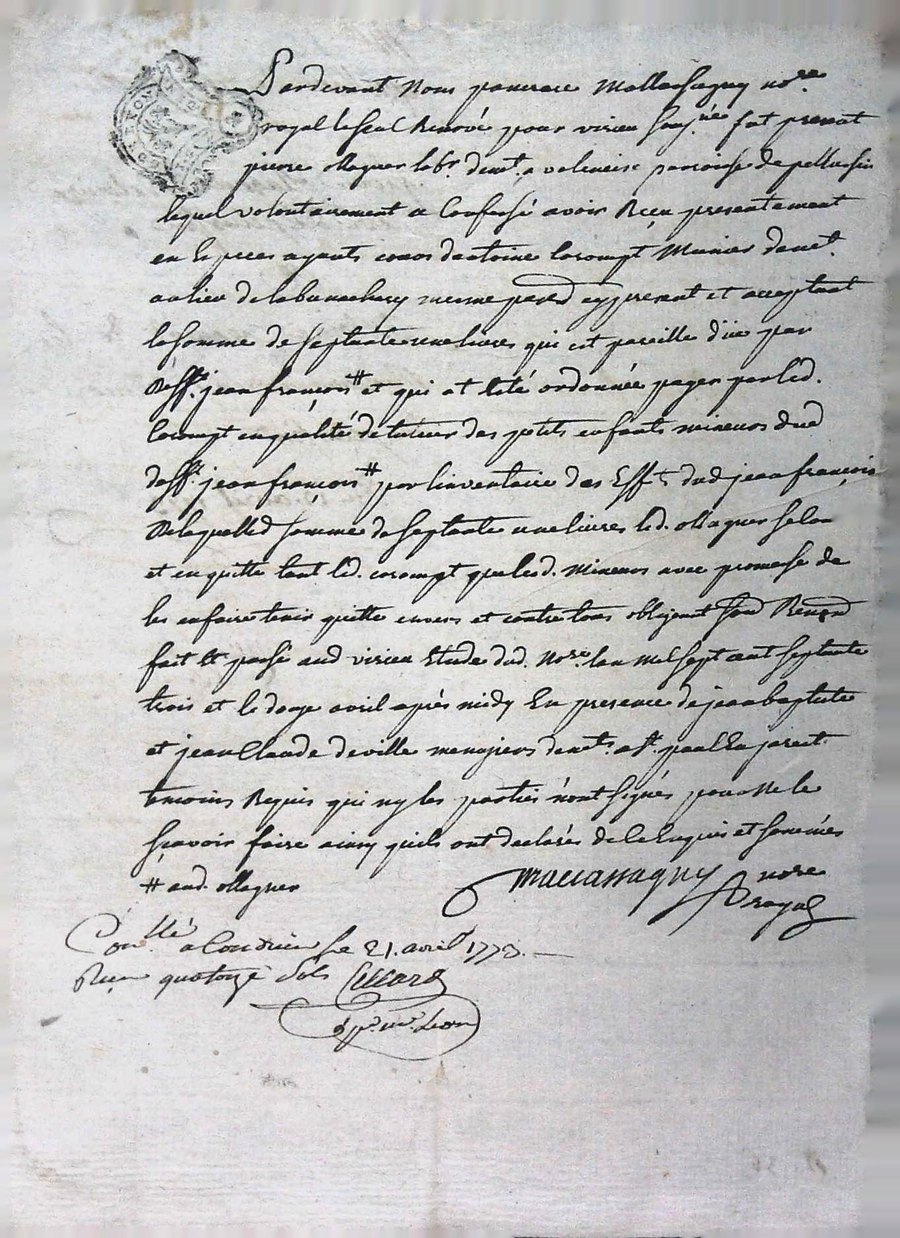 Pardevant Nous pancrace Mallassagny no.re
royal le seal Renové pour virieu soussignée fut present
pierre ollagner lab.r dem.t a valencise parroisse de pellussin
lequel volontairement a Confessé avoir Reçu presentement
en Especes ayants cours dantoine Corompt Meunier dem.t
au lieu de mesme par.d cy present et acceptant
la somme de septante une livres qui est pareille düe par
deff.t jean françois # et qui at Eté ordonnée payer par led.
Corompt en qualité de tuteur des petits enfants mineurs dud
deff.t jean françois # par linventaire des Eff.ts dud jean françois
De laquelled somme de septante une livres led. ollagner se
et en quitte tant led. corompt que lesd. Mineurs avec promesse de
les en faire tenir quitte envers et contre tous obligeant
fait Et passé aud virieu Etude dud. No.re lan mil sept cent septante
trois et le douze avril après midy En presence de jean baptiste
et jean Claude deville menagers dem.ts a s.t paul En jarest
temoins Requis qui ny les parties n'ont signés pour ne le
sçavoir faire ainsy quils ont declarés de ce Enquis et sommés
# aud. ollagner
Mallassagny no.re
royal
Con.llé a Condrieu le 21. avril 1773.
Reçu quatorze sols